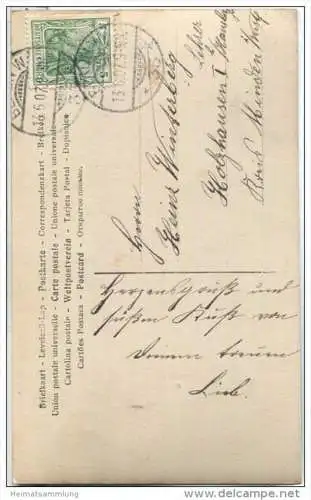 Briefkaart - Levelezö-Lap - Postkarte - Correspondenzkart - Brefkort
Union postale universelle - Carte postale - Unione postale universale
Cartolina postale - Weltpostverein - Tarjeta Postal - Dopisnice
Cartões Postaes - Postcard -
Herrn
Heinz Winterberg
Lehrer
Holzhausen I
Minden
Herzensgruß und
süßen Kuß von
Deinem treuen
Lieb.
Heimatsammlung